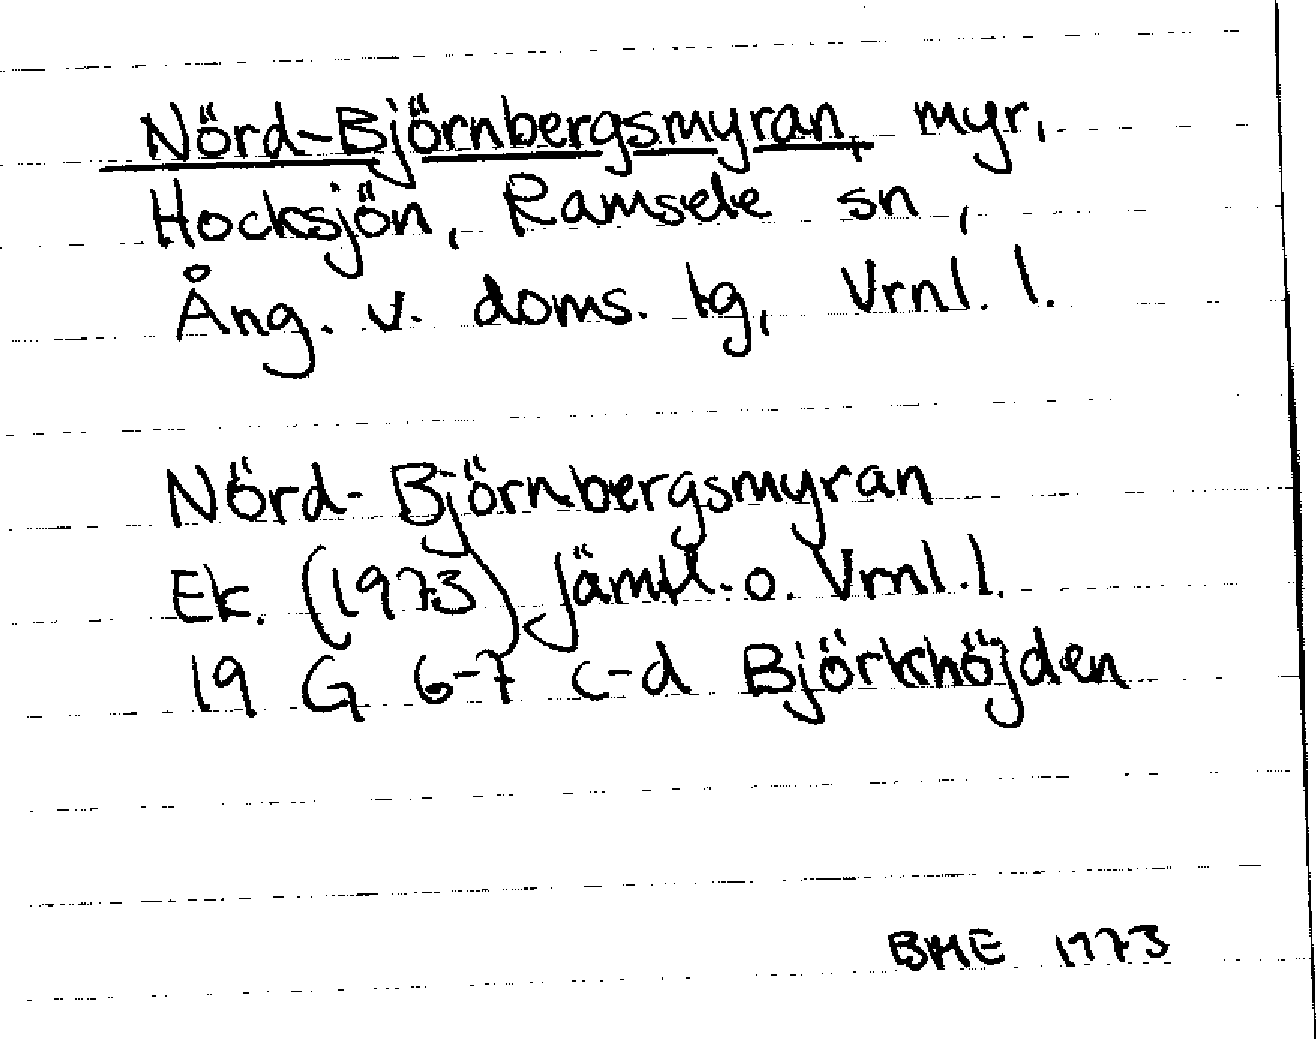 Nörd-Björnbergsmyran, myr,
Hocksjön, Ramsele sn,
Ång. v. doms. tg, Vrnl. l.
Nörd-Björnbergsmyran
Ek. (1973) Jämtl. o. Vrnl. l.
19 G 6-7 c-d Björkhöjden
BME 1973